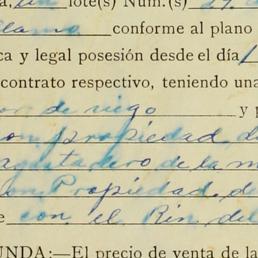 a, un lote(s) Núm.(s)
llano conforme al plano
ca y legal posesión desde el día
contrato respectivo, teniendo una
or de riego y p
on propiedad d
aguatadero de la m
on Propiedad de
e con el Rin del
UNDA:—El precio de venta de la